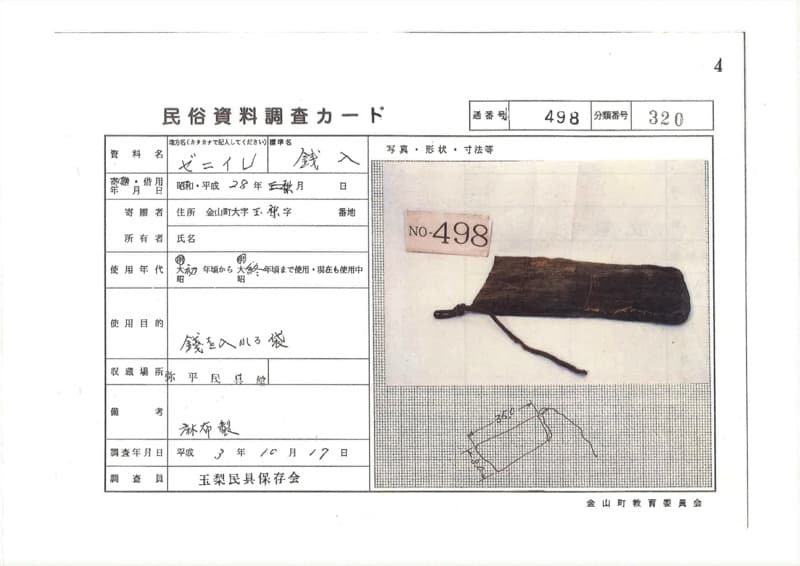 4
民俗資料調査カード
通番号 498 分類番号 320
資料名 地方名(カタカナで記入してください) ゼニイレ 標準名 銭入
寄贈・借用年月日 昭和・平成 28年 月 日
寄贈者 住所 金山町大字玉梨字 番地
所有者 氏名
使用年代 明 大 昭 初 年頃から 明 大 昭 終 年頃まで使用・現在も使用中
使用目的 銭を入れる袋
収蔵場所 弥平民具館
備考 麻布製
調査年月日 平成 3年 10月 17日
調査員 玉梨民具保存会
写真・形状・寸法等
NO-498
35.0
金山町教育委員会